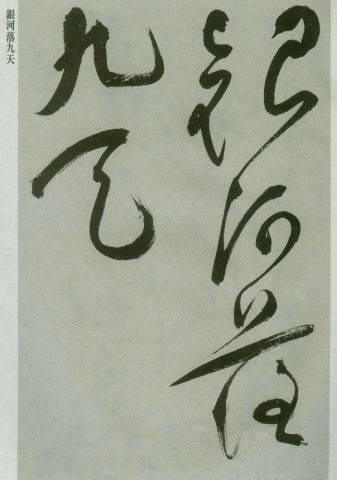 銀河落
九天
銀河落九天